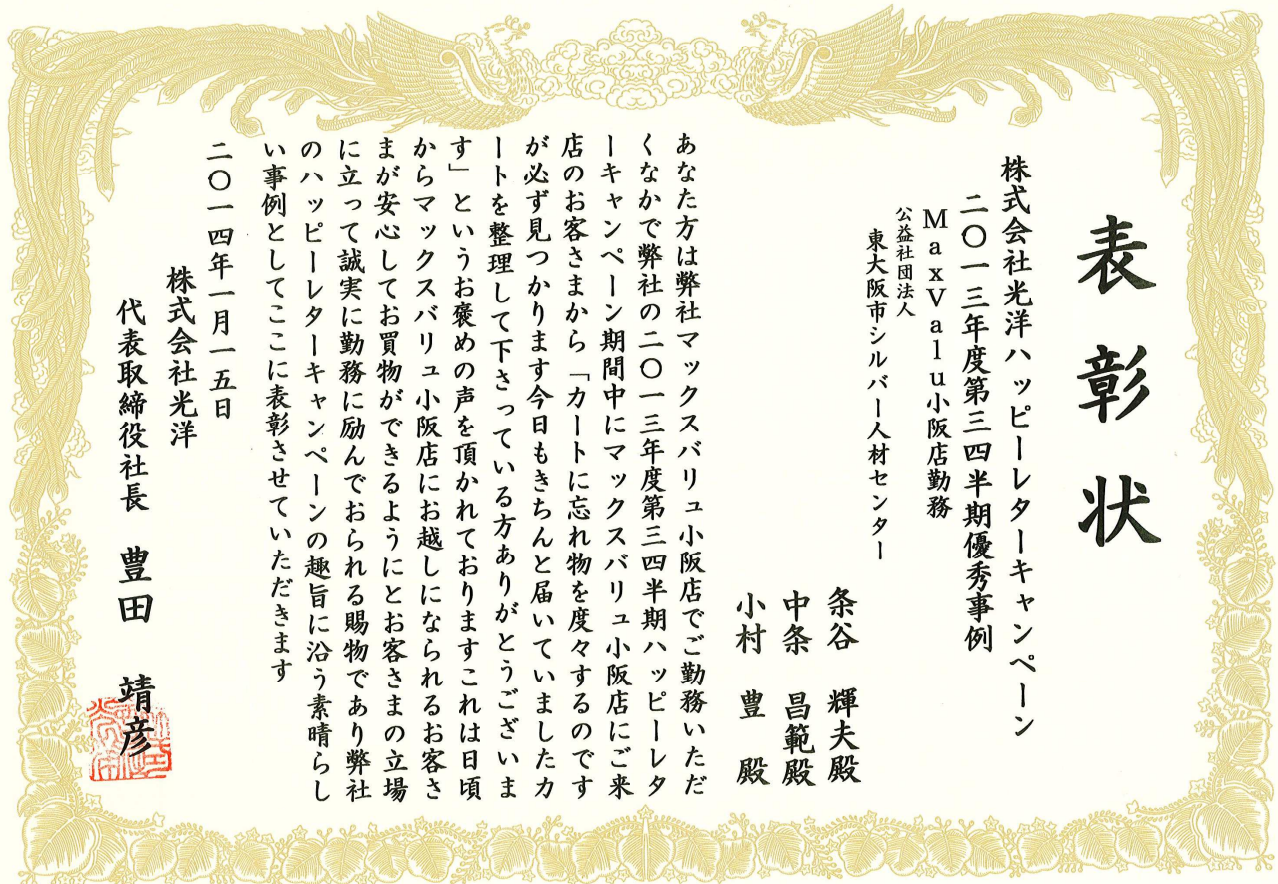 表彰状
株式会社光洋ハッピーレターキャンペーン
二〇一三年度第三四半期優秀事例
MaxValu小阪店勤務
公益社団法人
東大阪市シルバー人材センター
条谷 輝夫殿
中条 昌範殿
小村 豊 殿
あなた方は弊社マックスバリュ小阪店でご勤務いただ
くなかで弊社の二〇一三年度第三四半期ハッピーレタ
ーキャンペーン期間中にマックスバリュ小阪店にご来
店のお客さまから「カートに忘れ物を度々するのです
が必ず見つかります今日もきちんと届いていましたカ
ートを整理して下さっている方ありがとうございま
す」というお褒めの声を頂かれておりますこれは日頃
からマックスバリュ小阪店にお越しになられるお客さ
まが安心してお買物ができるようにとお客さまの立場
に立って誠実に勤務に励んでおられる賜物であり弊社
のハッピーレターキャンペーンの趣旨に沿う素晴らし
い事例としてここに表彰させていただきます
二〇一四年一月一五日
株式会社光洋
代表取締役社長 豊田 靖彦